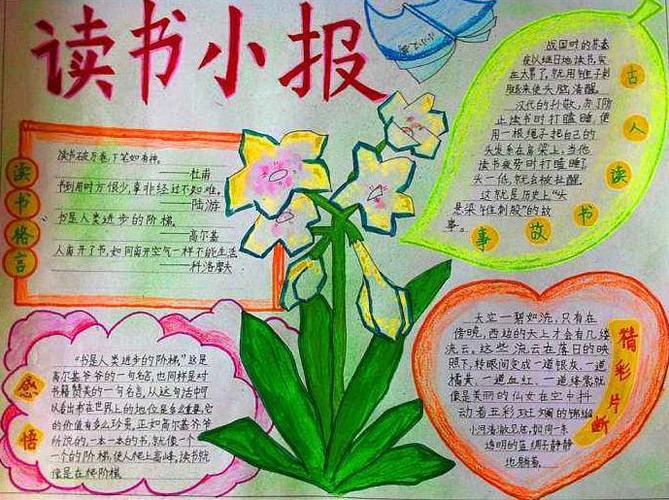 读书小报
读书格言
读书破万卷，下笔如有神。
——杜甫
书到用时方恨少，事非经过不知难，
——陆游
书是人类进步的阶梯。
——高尔基
人离开了书，如同离开空气一样不能生活
——科洛廖夫
古人读书故事
战国时的苏秦
夜以继日地读书，实
在太累了，就用锥子刺
腿来使头脑清醒。
汉代的孙敬，为了防
止读书时打瞌睡，便
用一根绳子把自己的
头发系在房梁上，当他
读书疲劳时打瞌睡了，
头一低，就会被扯醒。
这就是历史上"头
悬梁锥刺股"的故
事。
感悟
"书是人类进步的阶梯。"这是
高尔基爷爷的一句名言，也同样是对
书籍赞美的一句名言，从这句话中可
以看出书在世界上的地位是多么重要，它
的价值有多么珍贵，正如高尔基爷爷
所说的，一本一本的书，就像一个
一个的阶梯，使人爬上高峰，读书就
像是在爬阶梯
精彩片断
天空一碧如洗，只有在
傍晚，西边的天上才会有几缕
流云，这些流云在落日的映
照下，转眼间变成一道银灰，一道
橘黄，一道血红，一道绛紫，就
像是美丽的仙女在空中抖
动着五彩斑斓的锦缎
小河清澈见底，如同一条
透明的蓝绸子静静
地躺着，